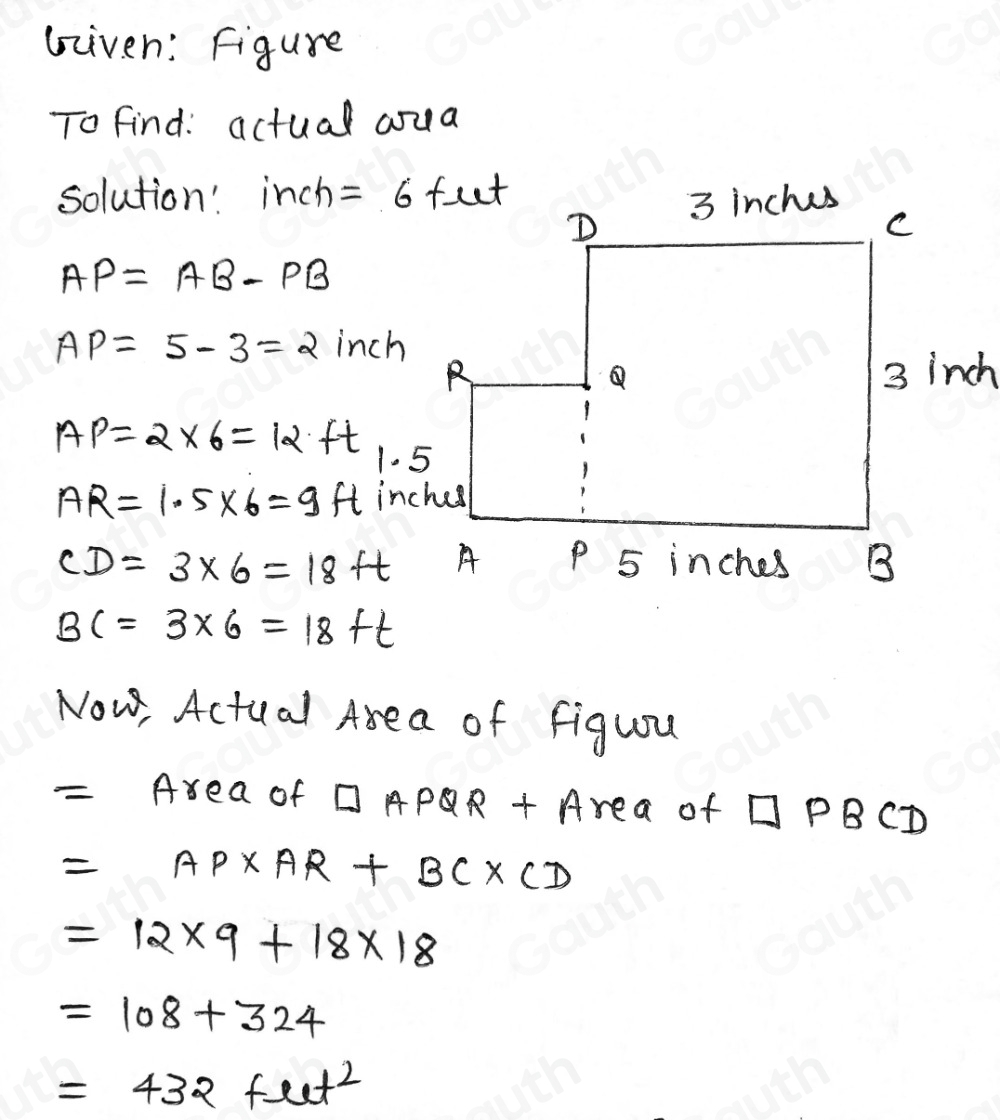 Given: Figure
To find: actual area
Solution: inch = 6 feet
AP = AB - PB
AP = 5 - 3 = 2 inch
AP = 2 x 6 = 12 ft
AR = 1.5 x 6 = 9 ft
CD = 3 x 6 = 18 ft
BC = 3 x 6 = 18 ft
3 inches
D
C
R
Q
3 inch
1.5
inches
A
P
5 inches
B
Now, Actual Area of figure
= Area of □ APQR + Area of □ PBCD
= AP x AR + BC x CD
= 12 x 9 + 18 x 18
= 108 + 324
= 432 feet²
Gauth